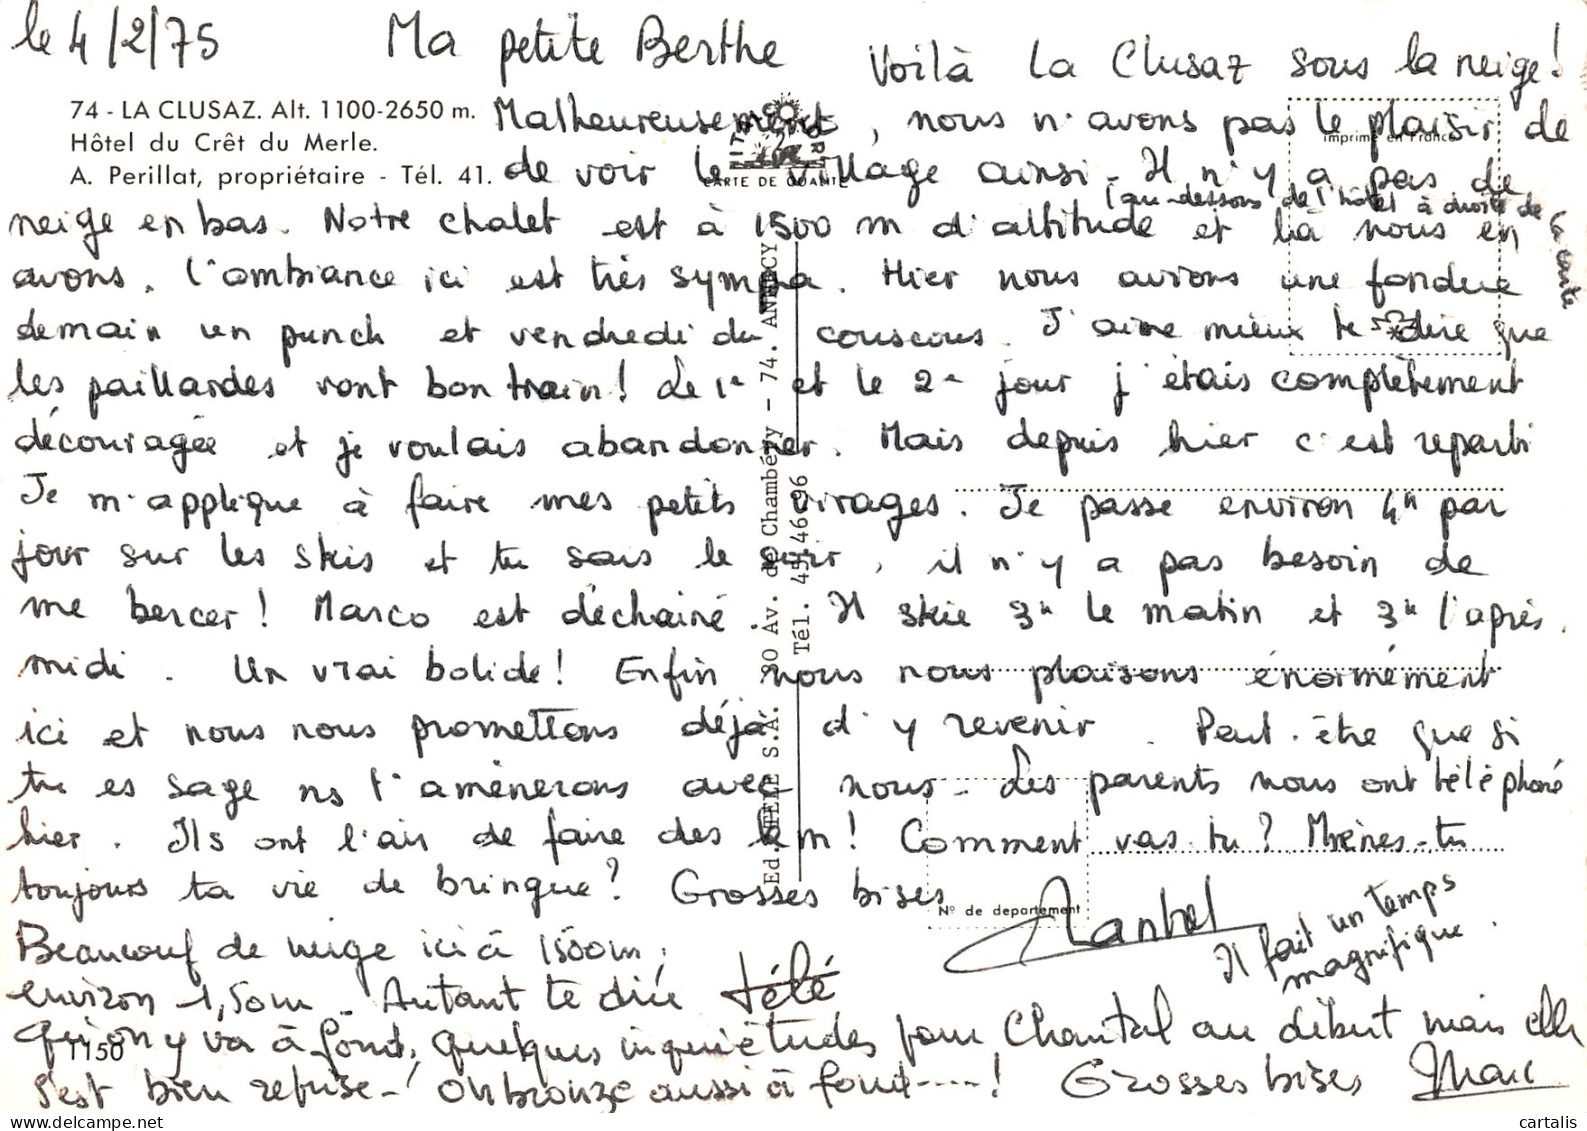 le 4/2/75
Ma petite Berthe
Voilà La Clusaz sous la neige!
74 - LA CLUSAZ. Alt. 1100-2650 m.
Hôtel du Crêt du Merle.
A. Perillat, propriétaire - Tél. 41.
Malheureusement, nous n'avons pas le plaisir de
imprimé en France
de voir le village ainsi - Il n'y a pas de
CARTE DE QUALITÉ
(au-dessous de l'hôtel à droite de la carte
neige en bas. Notre chalet est à 1500 m d'altitude et là nous en
avons. L'ambiance ici est très sympa. Hier nous avions une fondue
demain un punch et vendredi du couscous. J'aime mieux te dire que
les paillardes vont bon train! Le 1e et le 2e jour j'étais complètement
découragée et je voulais abandonner. Mais depuis hier c'est reparti
Je m'applique à faire mes petits virages. Je passe environ 4h par
jour sur les skis et tu sais le soir, il n'y a pas besoin de
me bercer! Marco est déchainé. Il skie 3h le matin et 3h l'après.
midi. Un vrai bolide! Enfin nous nous plaisons énormément
ici et nous nous promettons déjà d'y revenir. Peut-être que si
tu es sage ns t'amènerons avec nous - Les parents nous ont téléphoné
hier. Ils ont l'air de faire des km! Comment vas-tu? Mènes-tu
toujours ta vie de bringue? Grosses bises
N° de departement
Chantal
Il fait un temps
magnifique.
Beaucoup de neige ici à 1500m:
environ 1,50m - Autant te dire télé
qu'on y va à fond, quelques inquiétudes pour Chantal au début mais elle
1150
s'est bien reprise -! On bronze aussi à fond ----! Grosses bises Marc
Ed. S.A. 30 Av. de Chambéry - 74. ANNECY
Tél. 45-46-96
cartalis